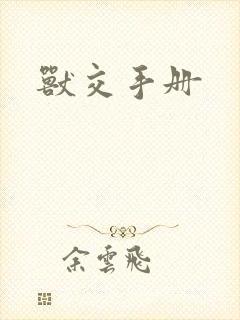 獸交手册
余雲飛